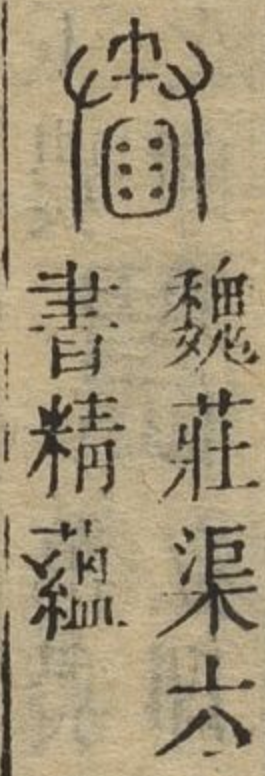 魏莊渠六
書精蘊